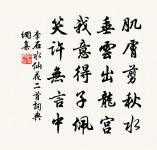 肌膚剪秋水
垂雲出龍宮
我意得子佩
笑許無言中
李石水仙花二首詞典
網集